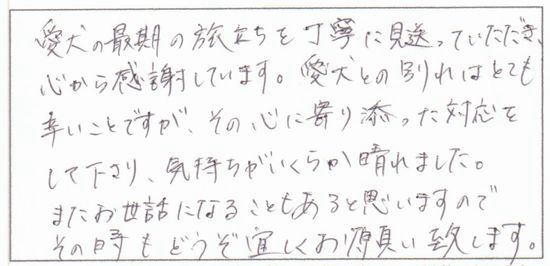 愛犬の最期の旅立ちを丁寧に見送っていただき、
心から感謝しています。愛犬との別れはとても
辛いことですが、その心に寄り添った対応を
して下さり、気持ちがいくらか晴れました。
またお世話になることもあると思いますので
その時もどうぞ宜しくお願い致します。